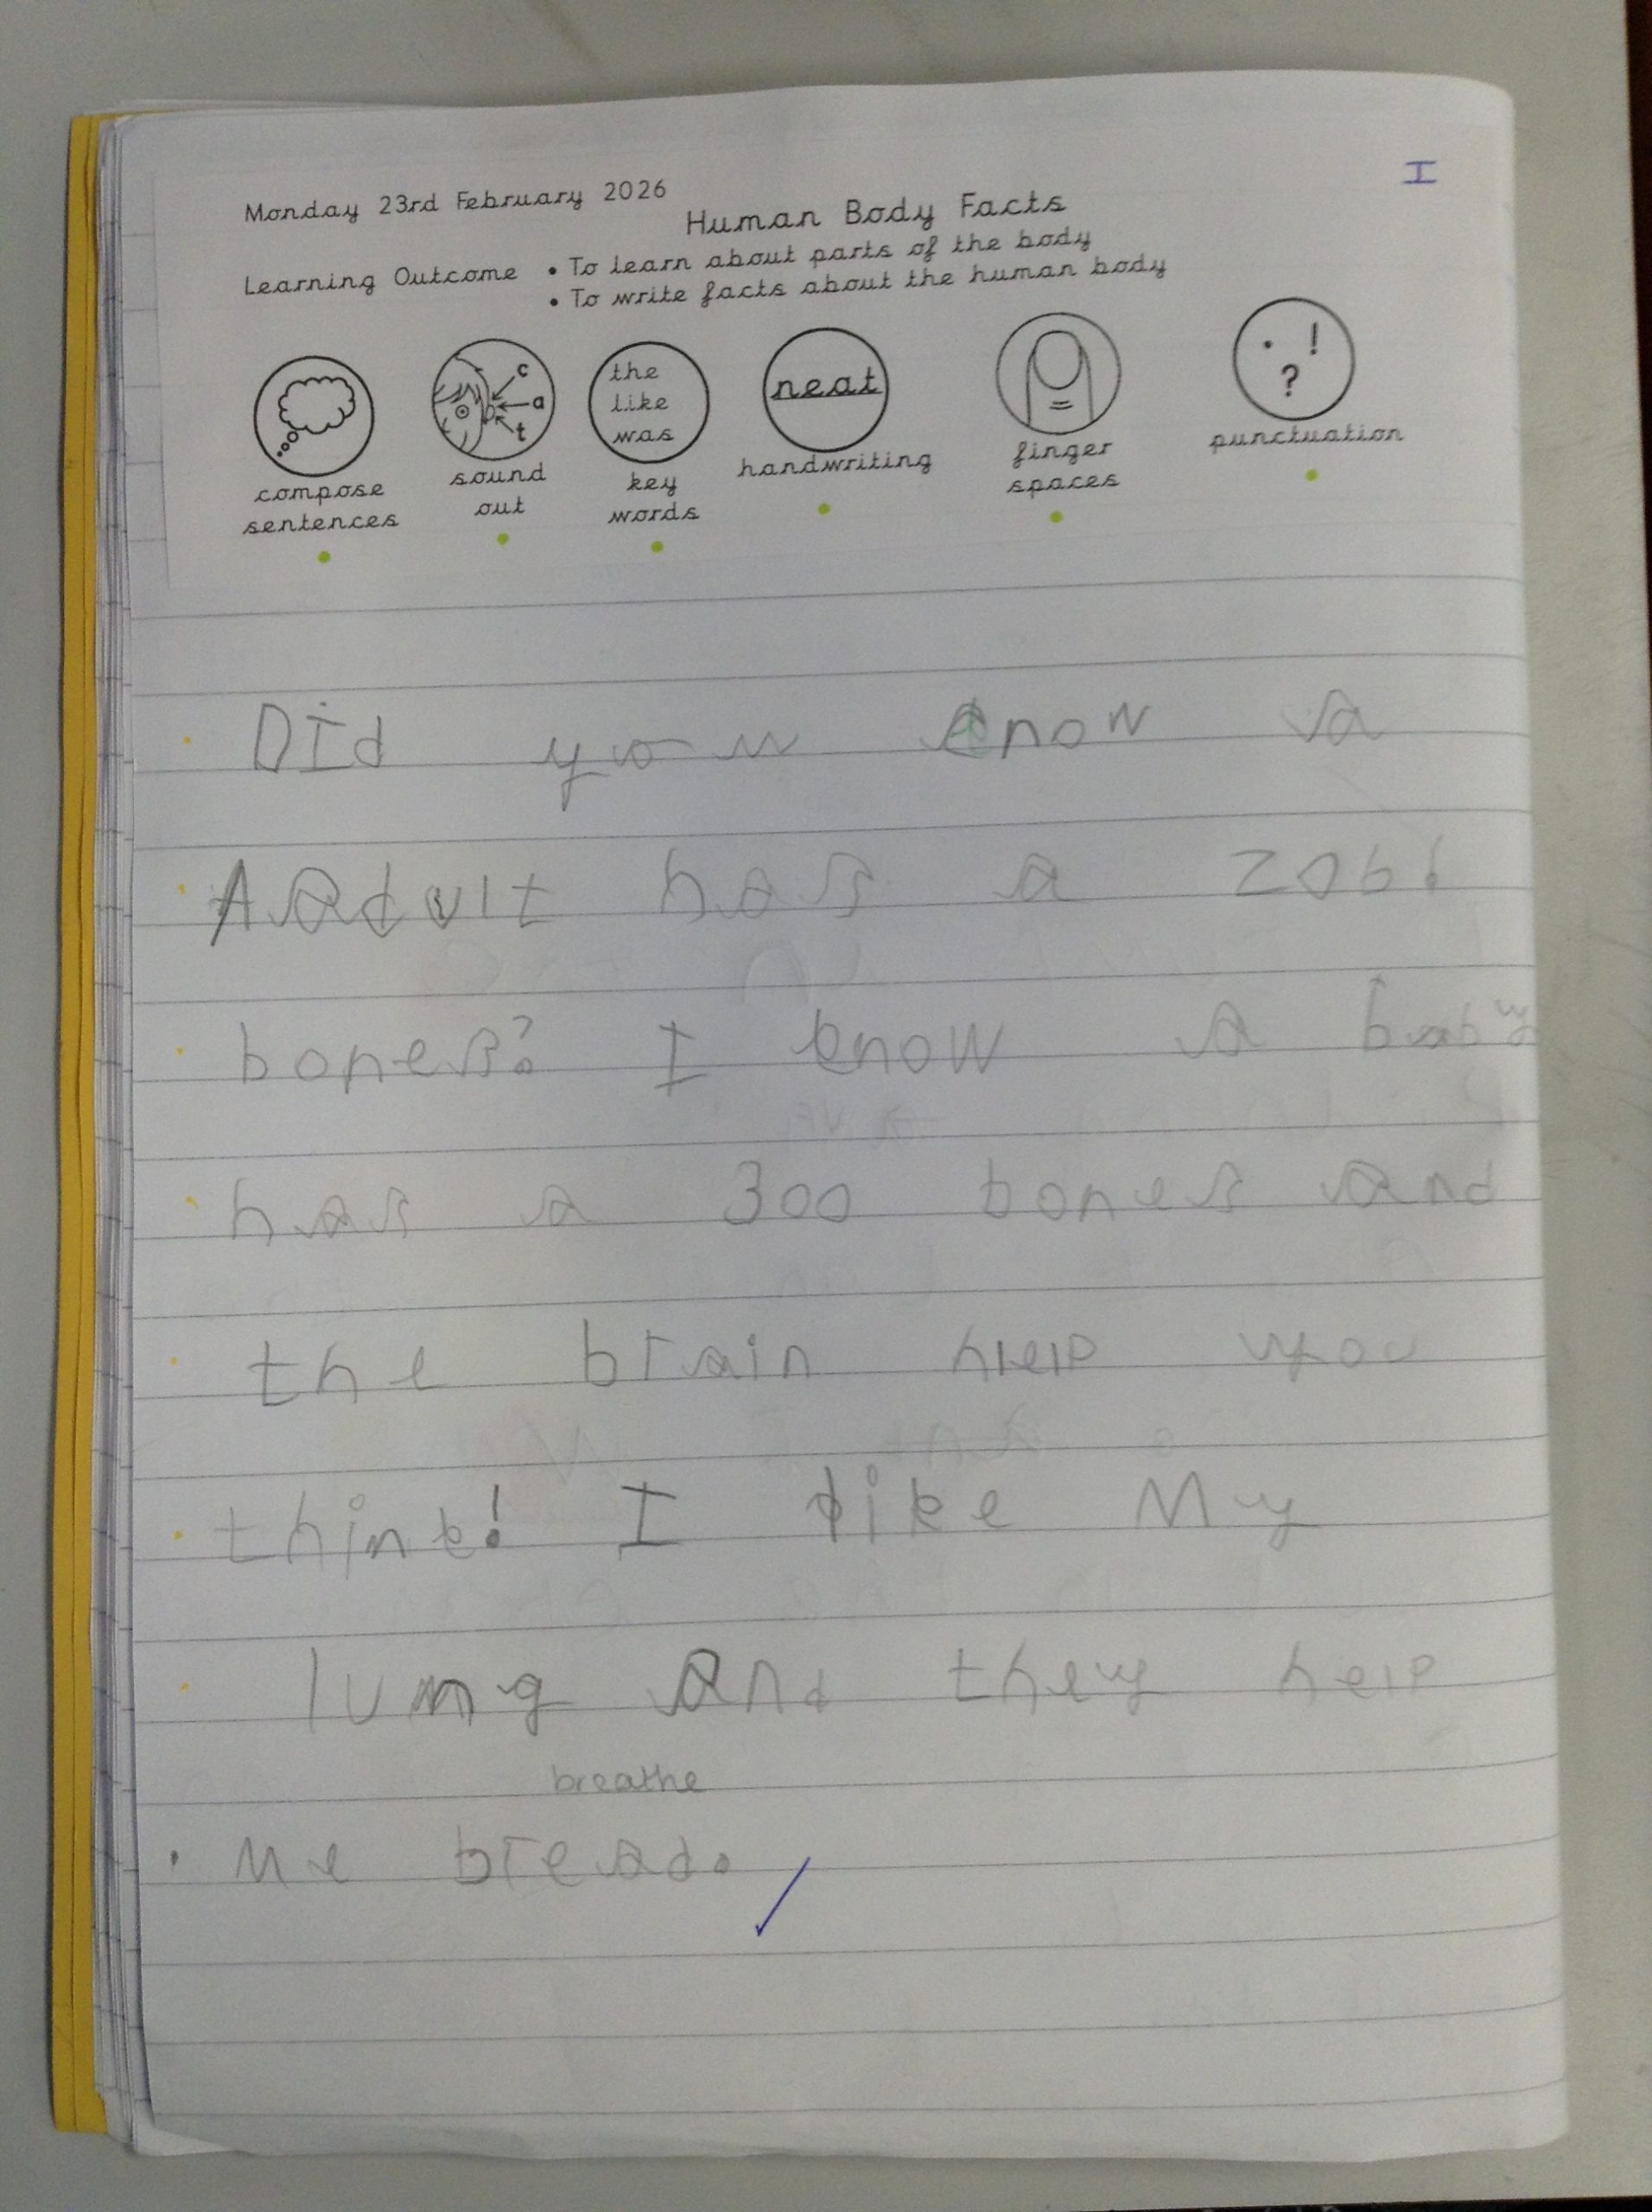 I
Monday 23rd February 2026
Human Body Facts
Learning Outcome • To learn about parts of the body
• To write facts about the human body
the
like
was
neat
c
a
t
. ! ?
compose sentences
sound out
key words
handwriting
finger spaces
punctuation
Did you know a
Adult has a 206!
bones? I know a baby
has a 300 bones and
the brain help you
think! I like My
lung and they help
breathe
me bread.